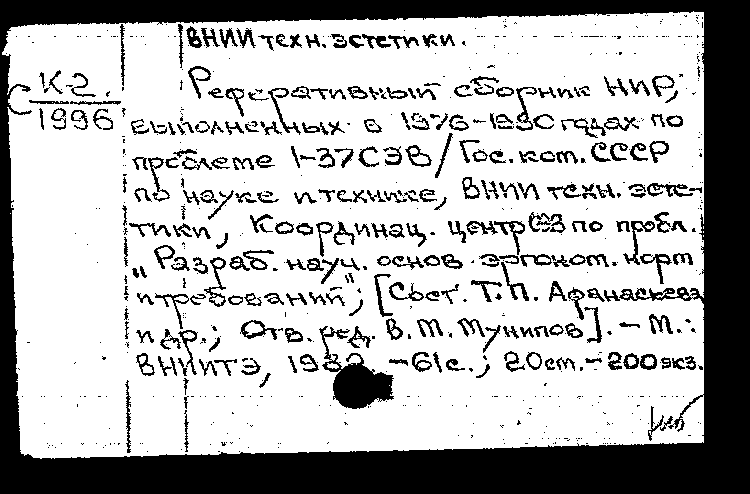 ВНИИ техн. эстетики.
К-2.
1996
Реферативный сборник НИР,
выполненных в 1976-1980 годах по
проблеме 1-37 СЭВ / Гос. ком. СССР
по науке и технике, ВНИИ техн. эсте-
тики, Координац. центр СЭВ по пробл.
„Разраб. науч. основ эргоном. норм
и требований"; [Сост. Т. П. Афанасьева
и др.; Отв. ред. В. М. Мунипов]. – М.:
ВНИИТЭ, 1982. – 61 с.; 20 см. – 200 экз.